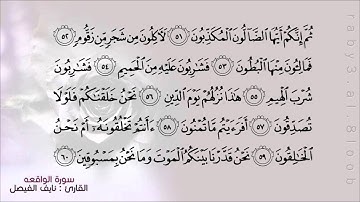 ثُمَّ إِنَّكُمْ أَيُّهَا ٱلضَّآلُّونَ ٱلْمُكَذِّبُونَ ٥١ لَءَاكِلُونَ مِن شَجَرٍ مِّن زَقُّومٍ ٥٢
فَمَالِـُٔونَ مِنْهَا ٱلْبُطُونَ ٥٣ فَشَـٰرِبُونَ عَلَيْهِ مِنَ ٱلْحَمِيمِ ٥٤ فَشَـٰرِبُونَ
شُرْبَ ٱلْهِيمِ ٥٥ هَـٰذَا نُزُلُهُمْ يَوْمَ ٱلدِّينِ ٥٦ نَحْنُ خَلَقْنَـٰكُمْ فَلَوْلَا
تُصَدِّقُونَ ٥٧ أَفَرَءَيْتُم مَّا تُمْنُونَ ٥٨ ءَأَنتُمْ تَخْلُقُونَهُۥٓ أَمْ نَحْنُ
ٱلْخَـٰلِقُونَ ٥٩ نَحْنُ قَدَّرْنَا بَيْنَكُمُ ٱلْمَوْتَ وَمَا نَحْنُ بِمَسْبُوقِينَ ٦٠
سورة الواقعه
القارئ : نايف الفيصل